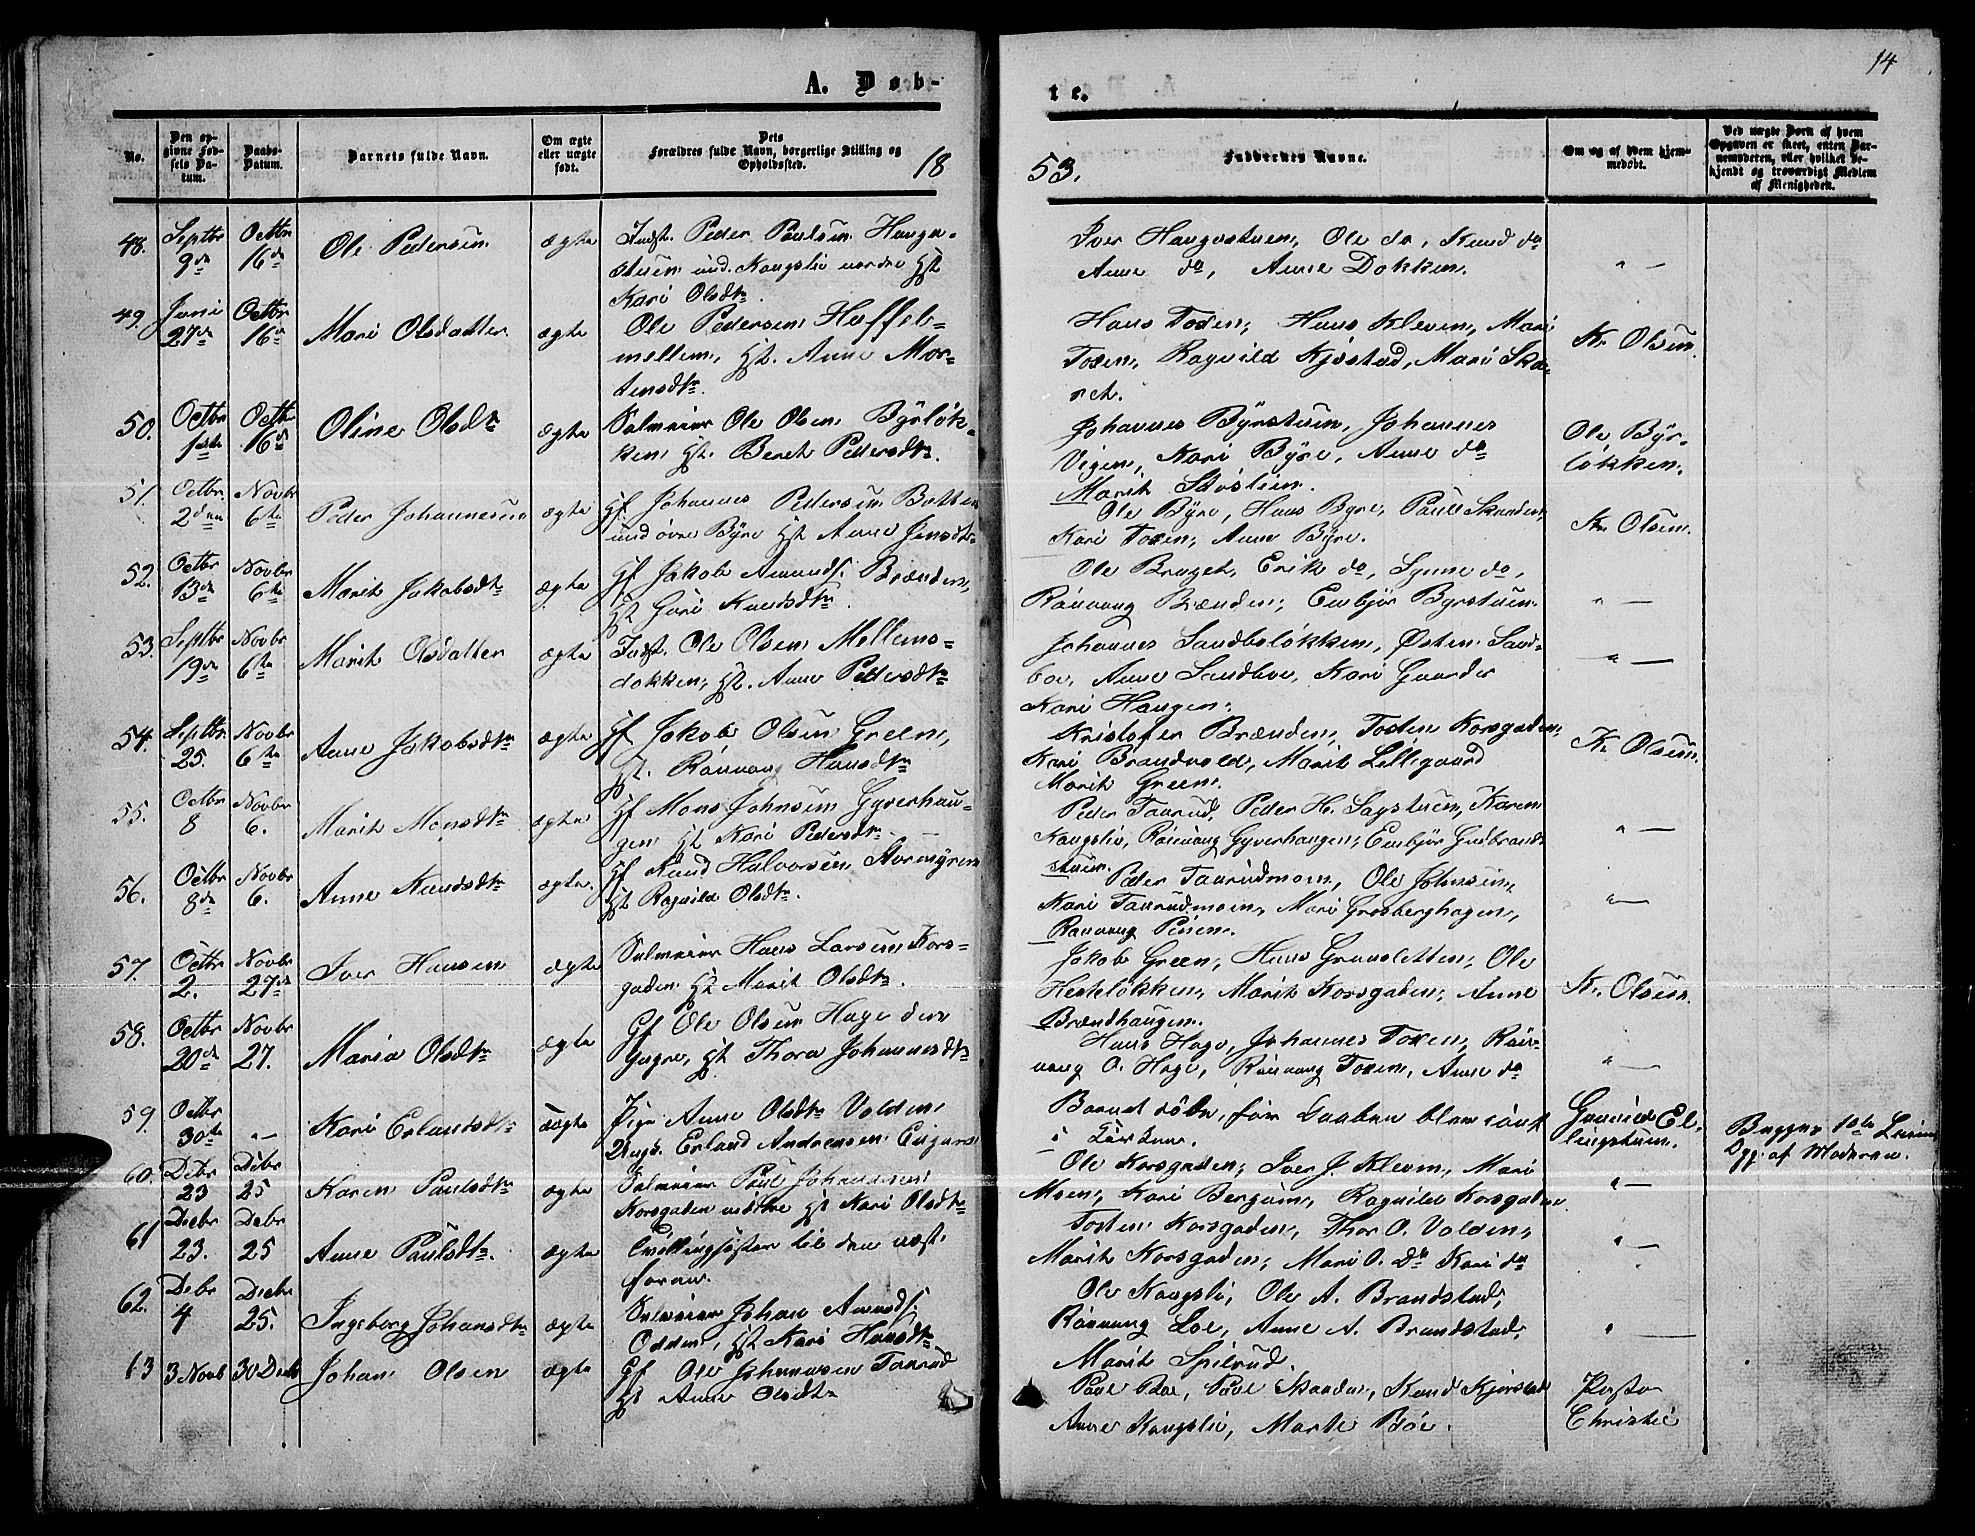 14
A. Døb-
te.
No.
Den op-
givne Fød-
sels Da-
tum.
Daabs-
Datum.
Barnets fulde Navn.
Om ægte
eller uægte
født.
Dets
Forældres fulde Navn, borgerlige Stilling og
Opholdssted.
18
53.
Faddernes Navne.
Om og af hvem hjem-
medøbt.
Ved uægte Børn af hvem
Opgaven er skeet, enten Bar-
nemoderen, eller hvilket be-
kjendt og troværdigt Medlem
af Menigheden.
48. Septbr 9de Octbr 16de Ole Pedersen ægte Indst. Peder Paulsen Haugs-
stuen und. Kongsli nordre Hst
Kari Olsdtr.
Iver Haugstuen, Ole do, Knud do
Anne do, Anne Dokken. " —
49. Juni 27de Octbr 16de Mari Olsdatter ægte Ole Pedersen Haffeld-
mellem, Hst. Anne Mor-
tensdtr.
Hans Toxen, Hans Kleven, Mari
Toxen, Ragnild Kjøstad, Mari Ska-
ret. Kr Olsen.
50. Octbr 1ste Octbr 16de Oline Olsdtr ægte Selveier Ole Olsen Byrløk-
ken Hst. Berit Pedersdtr.
Johannes Byrstuen, Johannes
Vigen, Kari Byre, Anne do
Marit Sløslien. Ole Byr-
løkken.
51. Octbr 2den Novbr 6te Peder Johannesen ægte Gf Johannes Pedersen Botten
und øvre Byre Hst Anne Jensdtr
Ole Byre, Hans Byre, Paul Skanden,
Kari Toxen, Anne Byre. Kr Olsen.
52. Octbr 13de Novbr 6te Marit Jakobsdtr ægte Gf Jakob Amunds. Brænden,
Hst Guri Knudsdtr.
Ole Braget, Erik do, Synne do,
Rønnaug Brænden, Embjør Byrstuen. " —
53. Septbr 19de Novbr 6te Marit Olsdatter ægte Indst. Ole Olsen Mellems-
dokken, Hst. Anne Pedersdtr
Johannes Sandboløkken, Østen Sand-
boe, Anne Sandboe, Kari Gaarder
Kari Haugen. " —
54. Septbr 25. Novbr 6te Anne Jakobsdtr ægte Gf Jakob Olsen Green,
Hst. Rønnaug Hansdtr
Kristofer Brænden, Tosten Korsgaden,
Kari Brandvold, Marit Lillegaard
Marit Green. Kr Olsen.
55. Octbr 8 Novbr 6. Marit Monsdtr ægte Gf Mons Johnsen Gyverhau-
gen Hst Kari Pedersdtr. —
Peder Taarud, Peder H. Sagstuen, Karen
Kongsli, Rønnaug Gyverhaugen, Embjør Gudbrand-
stuen. " —
56. Octbr 8de Novbr 6. Anne Knudsdtr ægte. Gf Knud Halvorsen Stormyren
Hst Ragnild Olsdtr.
Peder Taarudmoen, Ole Johnsen,
Kari Taarudmoen, Mari Grosberghagen,
Rønnaug Pinen. " —
57. Octbr 2. Novbr 27de Iver Hansen ægte Selveier Hans Larsen Kors-
gaden Hst Marit Olsdtr.
Jakob Green, Hans Gransletten, Ole
Hesteløkken, Marit Korsgaden, Anne
Brændhaugen. Kr. Olsen.
58. Octbr 20de Novbr 27. Maria Olsdtr ægte Gf Ole Olsen Hage den
Yngre, Hst Thora Johannesdtr
Hans Hage, Johannes Toxen, Røn-
naug O. Hage, Rønnaug Toxen, Anne do "
59. Octbr 30te " — Kari Erlandsdtr uægte Pige Anne Olsdtr Volden
Ungk. Erland Andreasen
Barnet døde, før Daaben blev
i Kirken. Gunild El-
lingstuen. Begges 1ste Leierm.
Opg. af Moderen.
60. Debr 23 Debr 25 Karen Paulsdtr ægte Selveier Paul Johannesen
Korsgaden nedtre Hst Kari Olsdtr
Ole Korsgaden, Iver J. Kleven, Mari
Moen, Kari Bergum, Ragnild Korsgaden " —
61 Decbr 23. Debr 25 Anne Paulsdtr. ægte Tvillingsøster til den næst
foran.
Tosten Korsgaden, Thor O. Volden,
Marit Korsgaden, Mari O. Do Kari do " —
62. Debr 4 Decbr 25. Ingeborg Johansdtr ægte Selveier Johan Amunds.
Odden, Hst Kari Hansdtr
Ole Kongsli, Ole A. Brandstad,
Rønnaug Loe, Anne A. Brandstad,
Marit Spilrud. " —
63 3 Novb 30 Decb Johan Olsen ægte Gf Ole Johannesen Taarud
Hst Anne Olsdtr
Paul Bøe, Paul Skanden, Knud Kjørstad
Anne Kongsli, Marte Bøe. Pastor
Christie